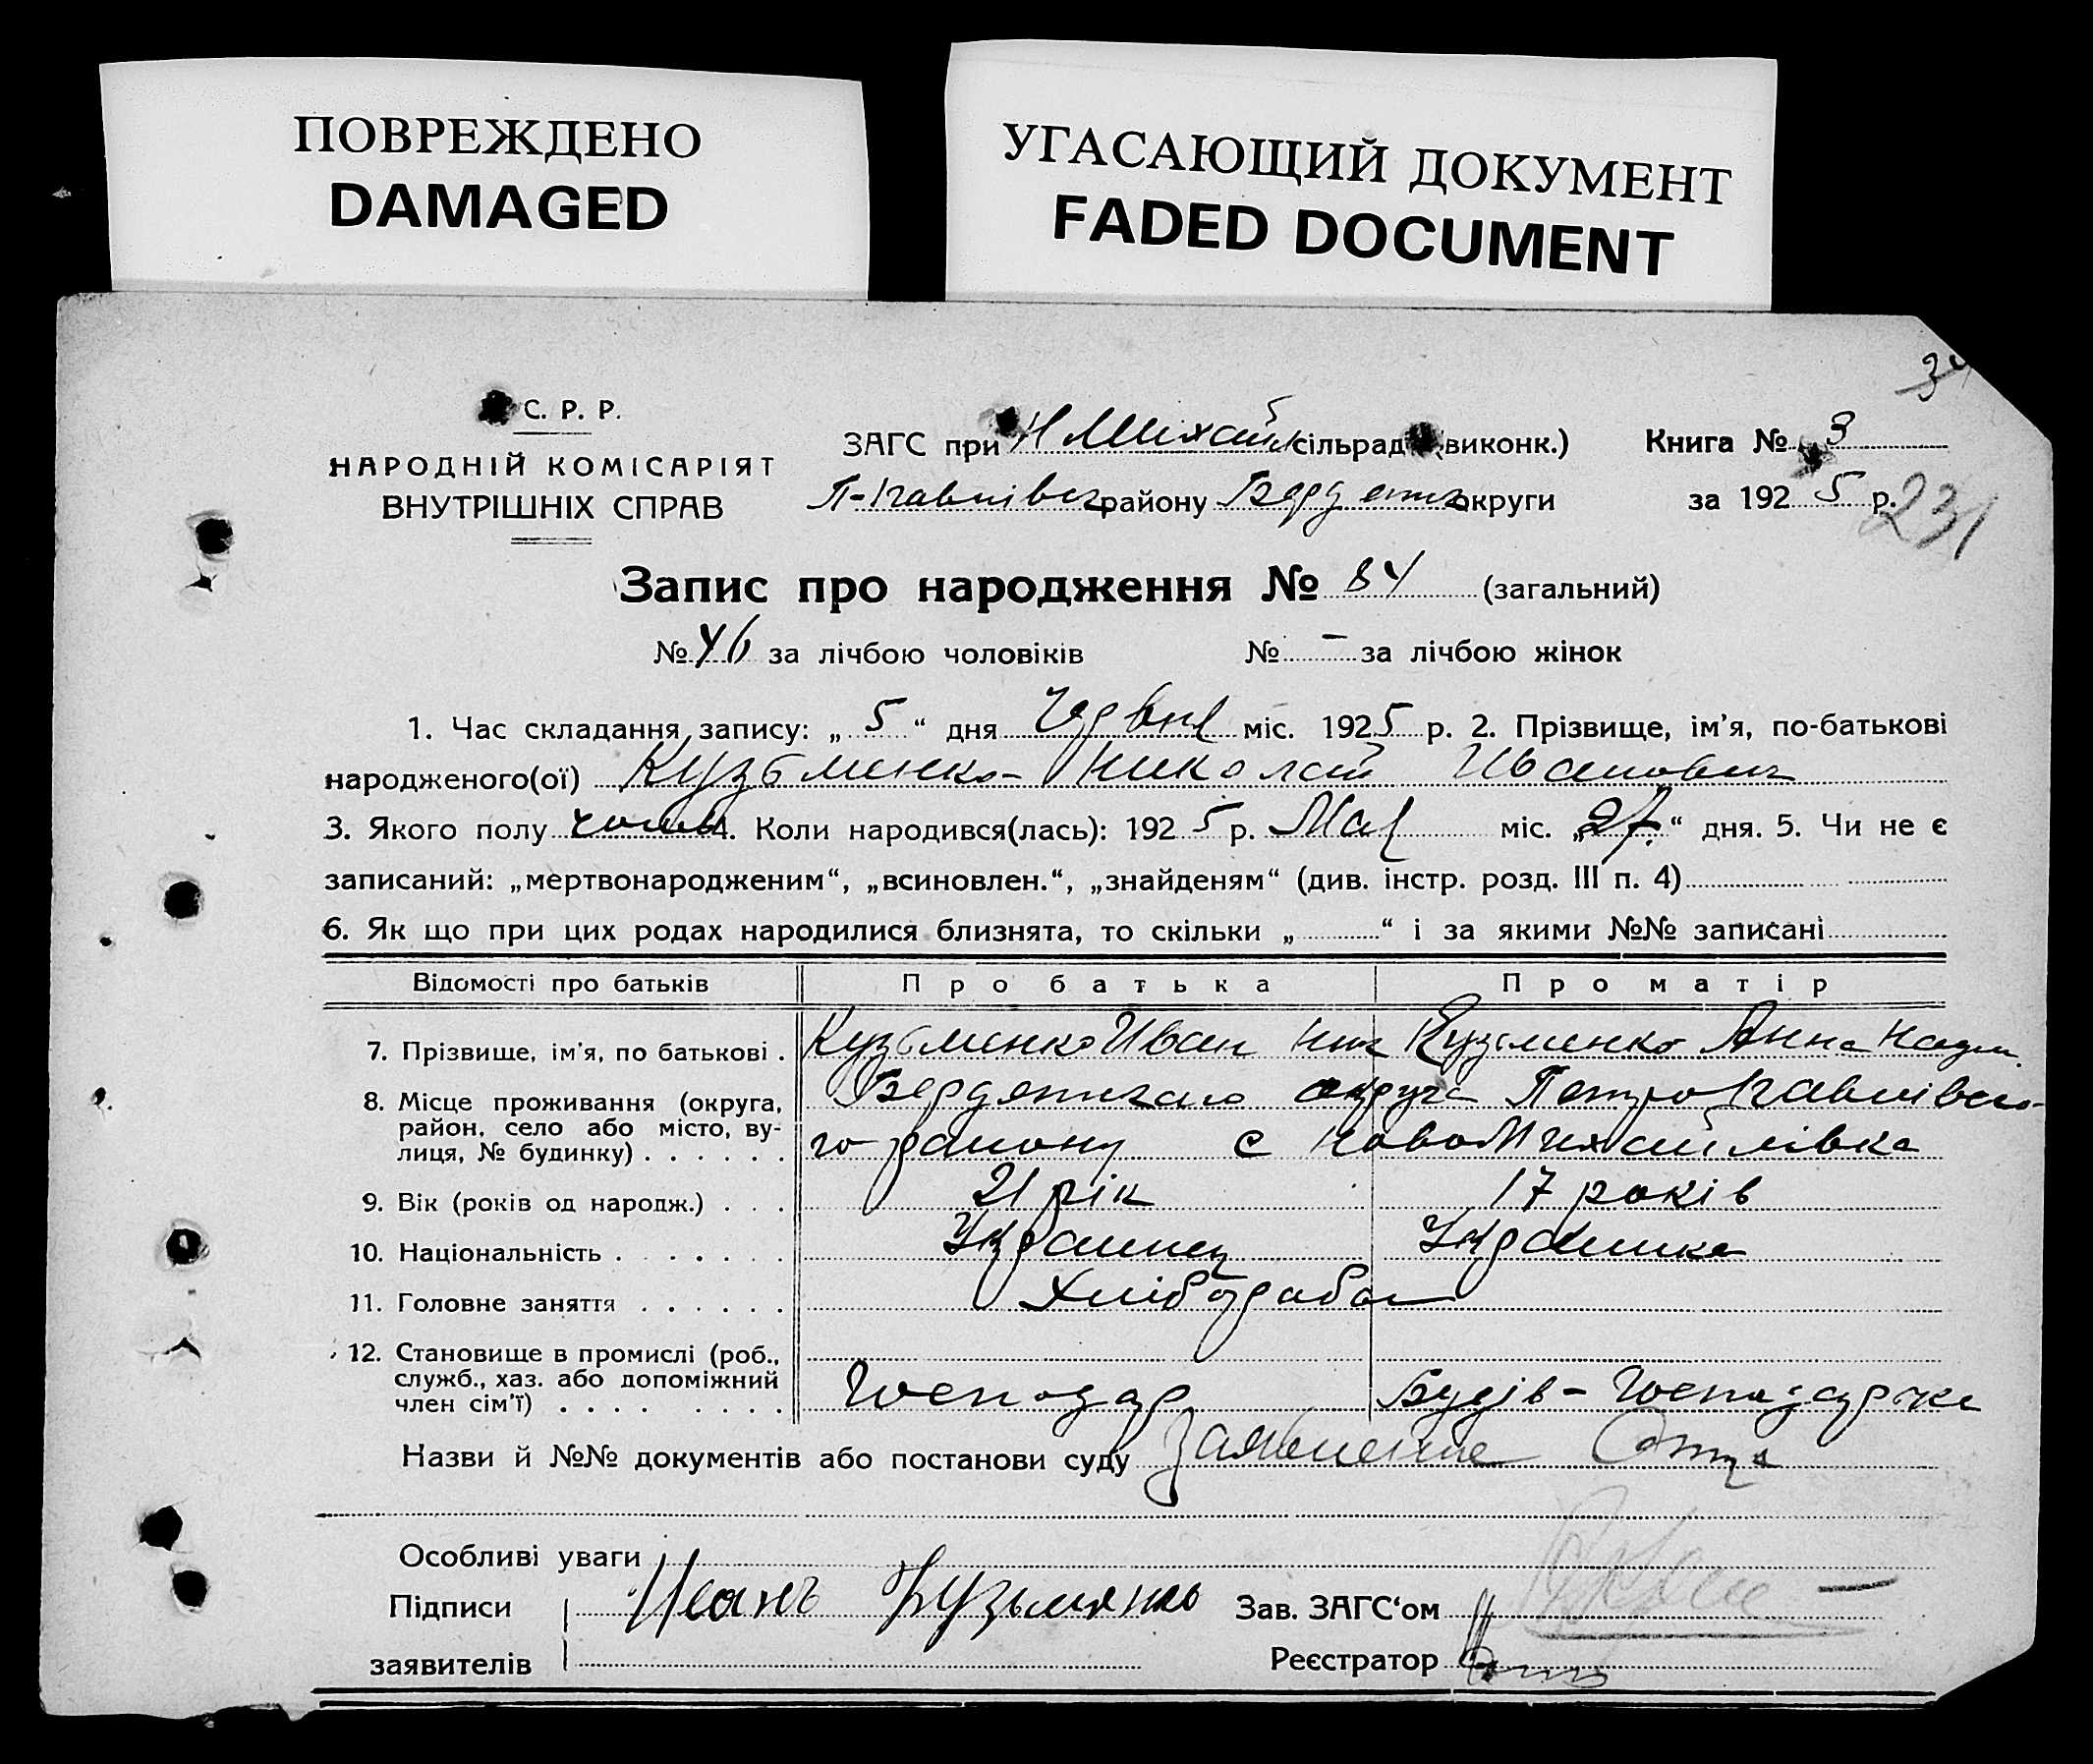 ПОВРЕЖДЕНО
DAMAGED
УГАСАЮЩИЙ ДОКУМЕНТ
FADED DOCUMENT
34
С. Р. Р.
НАРОДНІЙ КОМІСАРІЯТ
ВНУТРІШНІХ СПРАВ
ЗАГС при Н Михайл сільрад (виконк.) Книга № 3
району округи за 1925 р.
231
Запис про народження № 84 (загальний)
№ 46 за лічбою чоловіків № - за лічбою жінок
1. Час складання запису: „ 5 “ дня Червня міс. 1925 р. 2. Прізвище, ім'я, по-батькові
народженого(ої) Кузьменко Николай Иванович
3. Якого полу чолов 4. Коли народився(лась): 1925 р. Мая міс. „27“ дня. 5. Чи не є
записаний: „мертвонародженим“, „всиновлен.“, „знайденям“ (див. інстр. розд. III п. 4)
6. Як що при цих родах народилися близнята, то скільки „ “ і за якими №№ записані
Відомості про батьків Про батька Про матір
7. Прізвище, ім'я, по батькові . Кузьменко Иван Ник Кузьменко Анна
8. Місце проживання (округа,
район, село або місто, ву-
лиця, № будинку) . . . . . .
округа Петропавлівсько-
го району с НовоМихайлівка
9. Вік (років од народж.) . . . 21 рік 17 років
10. Національність . . . . . . Украинец Украинка
11. Головне заняття . . . . . . Хлібороба
12. Становище в промислі (роб.,
служб., хаз. або допоміжний
член сім'ї) . . . . . . . .
Господар Господарка
Назви й №№ документів або постанови суду Заявление Отца
Особливі уваги
Підписи Иванъ Кузьменко Зав. ЗАГС‘ом
заявителів Реєстратор